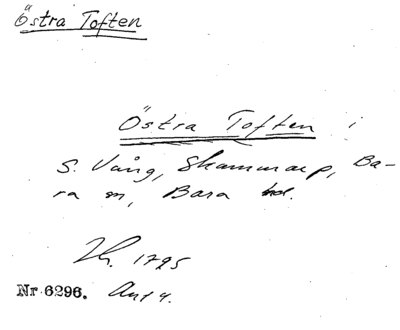 Östra Toften
Östra Toften i
S. Vång, Skammarp, Ba-
ra sn, Bara hd.
1795
Nr 6296. Ant 4.